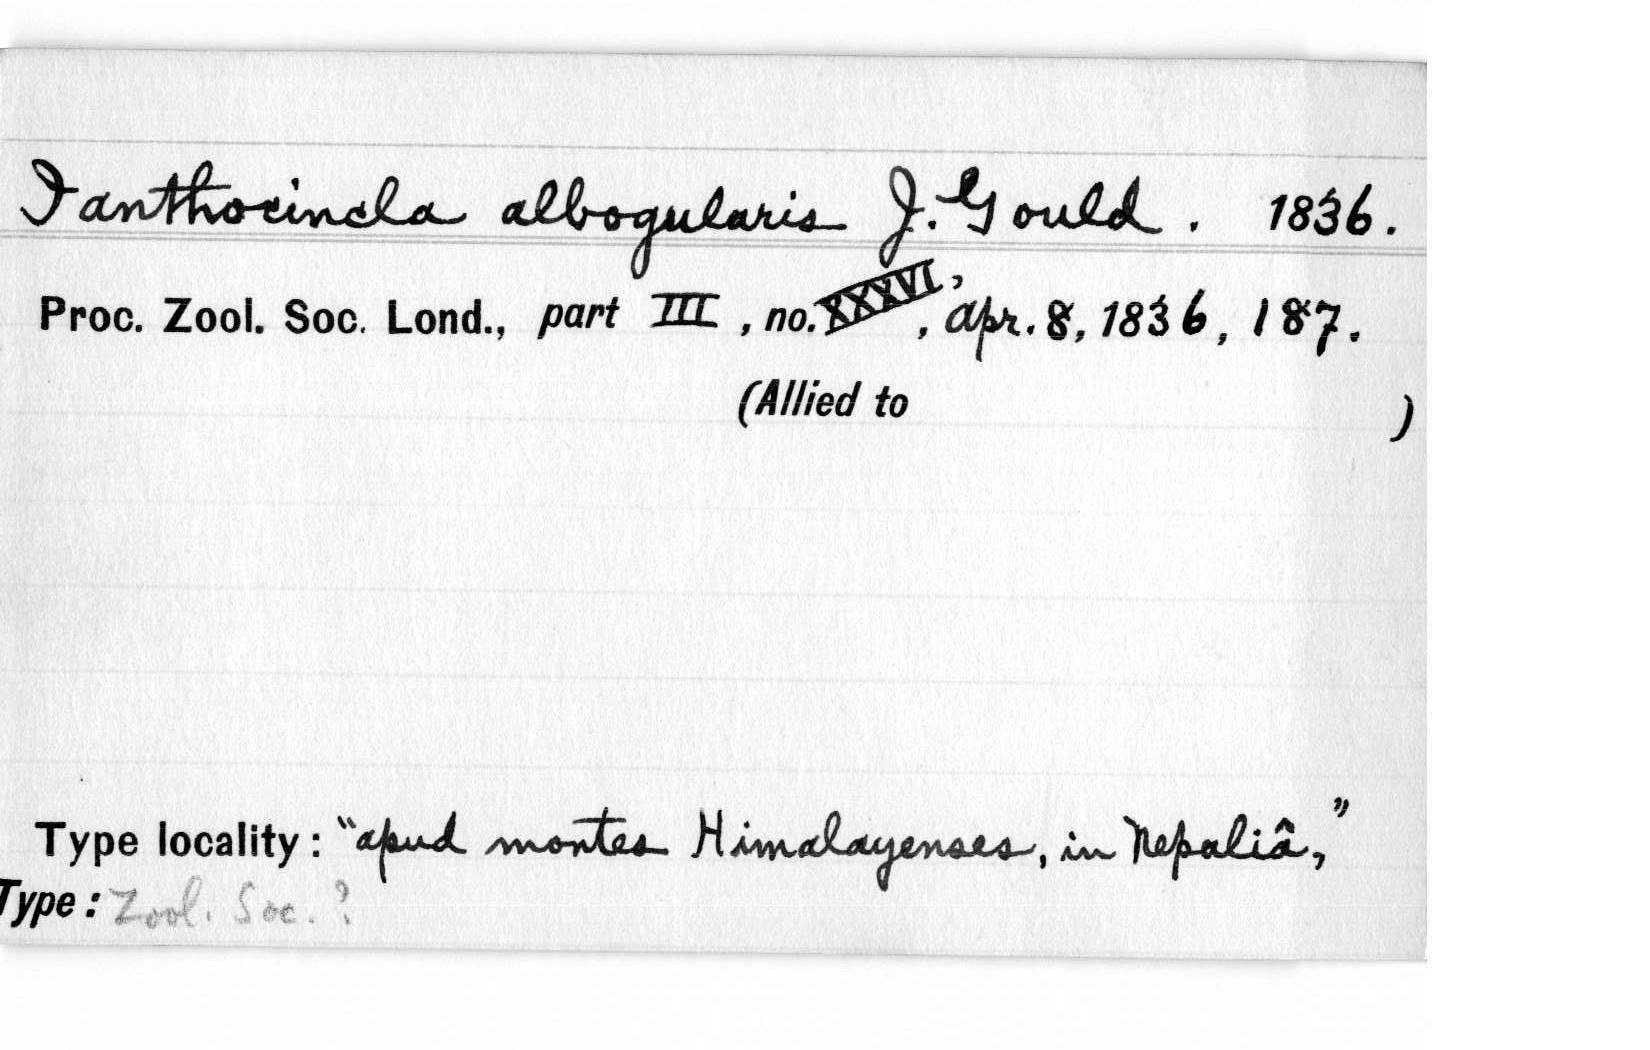 Ianthocincla albogularis J. Gould. 1836.
Proc. Zool. Soc. Lond., part III, no. XXXVI, Apr. 8, 1836, 187.
(Allied to )
Type locality: "apud montes Himalayenses, in Nepaliâ,"
Type: Zool. Soc. ?